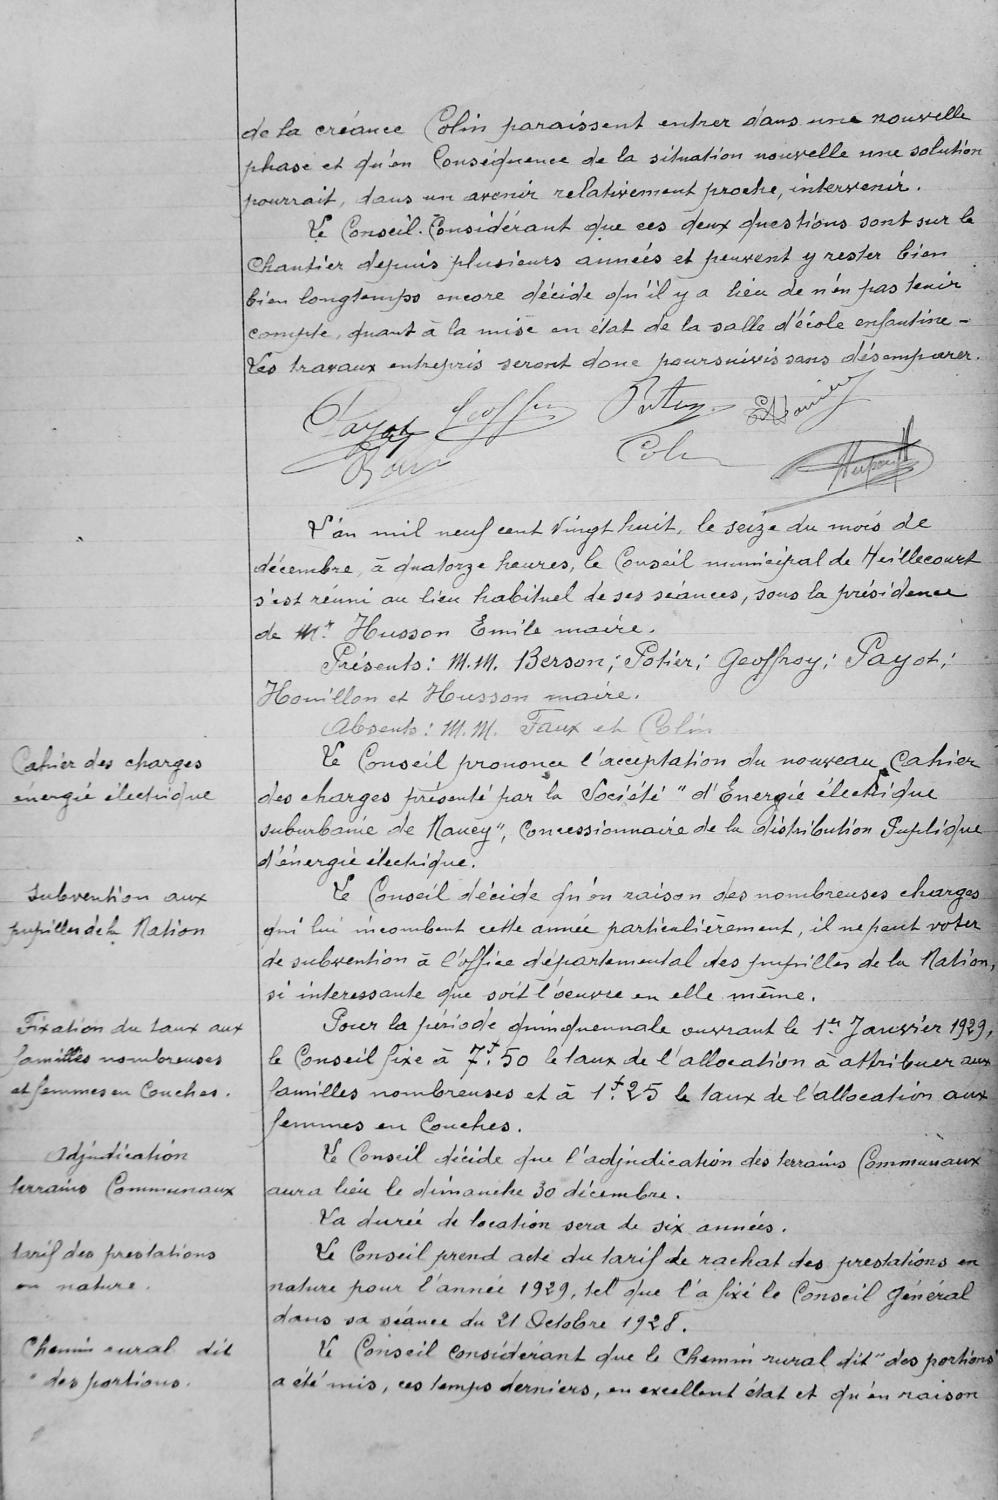 de la créance Colin paraissent entrer dans une nouvelle
phase et qu'en Conséquence de la situation nouvelle une solution
pourrait, dans un avenir relativement proche, intervenir.
Le Conseil. Considérant que ces deux questions sont sur le
Chantier depuis plusieurs années et peuvent y rester bien
bien longtemps encore décide qu'il y a lieu de n'en pas tenir
compte, quant à la mise en état de la salle d'école enfantine -
Les travaux entrepris seront donc poursuivis sans désemparer.
Payot Geoffroy
Colin
L'an mil neuf cent vingt huit, le seize du mois de
décembre, à quatorze heures, le Conseil municipal de Heillecourt
s'est réuni au lieu habituel de ses séances, sous la présidence
de Mr Husson Emile maire.
Présents: M.M. Berson; Potier; Geoffroy; Payot;
Houillon et Husson maire.
Absents: M.M. Faux et Colin
Cahier des charges
énergie électrique
Le Conseil prononce l'acceptation du nouveau Cahier
des charges présenté par la Société "d'Énergie électrique
suburbaine de Nancy", Concessionnaire de la distribution Publique
d'énergie électrique.
Subvention aux
pupilles de la Nation
Le Conseil décide qu'en raison des nombreuses charges
qui lui incombent cette année particulièrement, il ne peut voter
de subvention à l'office départemental des pupilles de la Nation,
si interessante que soit l'oeuvre en elle même.
Fixation du taux aux
familles nombreuses
et femmes en Couches.
Pour la période quinquennale ouvrant le 1er Janvier 1929,
le Conseil fixe à 7f.50 le taux de l'allocation à attribuer aux
familles nombreuses et à 1f.25 le taux de l'allocation aux
femmes en Couches.
Adjudication
terrains Communaux
Le Conseil décide que l'adjudication des terrains Communaux
aura lieu le dimanche 30 décembre.
La durée de location sera de six années.
tarif des prestations
en nature.
Le Conseil prend acte du tarif de rachat des prestations en
nature pour l'année 1929, tel que l'a fixé le Conseil Général
dans sa séance du 21 Octobre 1928.
Chemin rural dit
"des portions.
Le Conseil considérant que le Chemin rural dit "des portions"
a été mis, ces temps derniers, en excellent état et qu'en raison